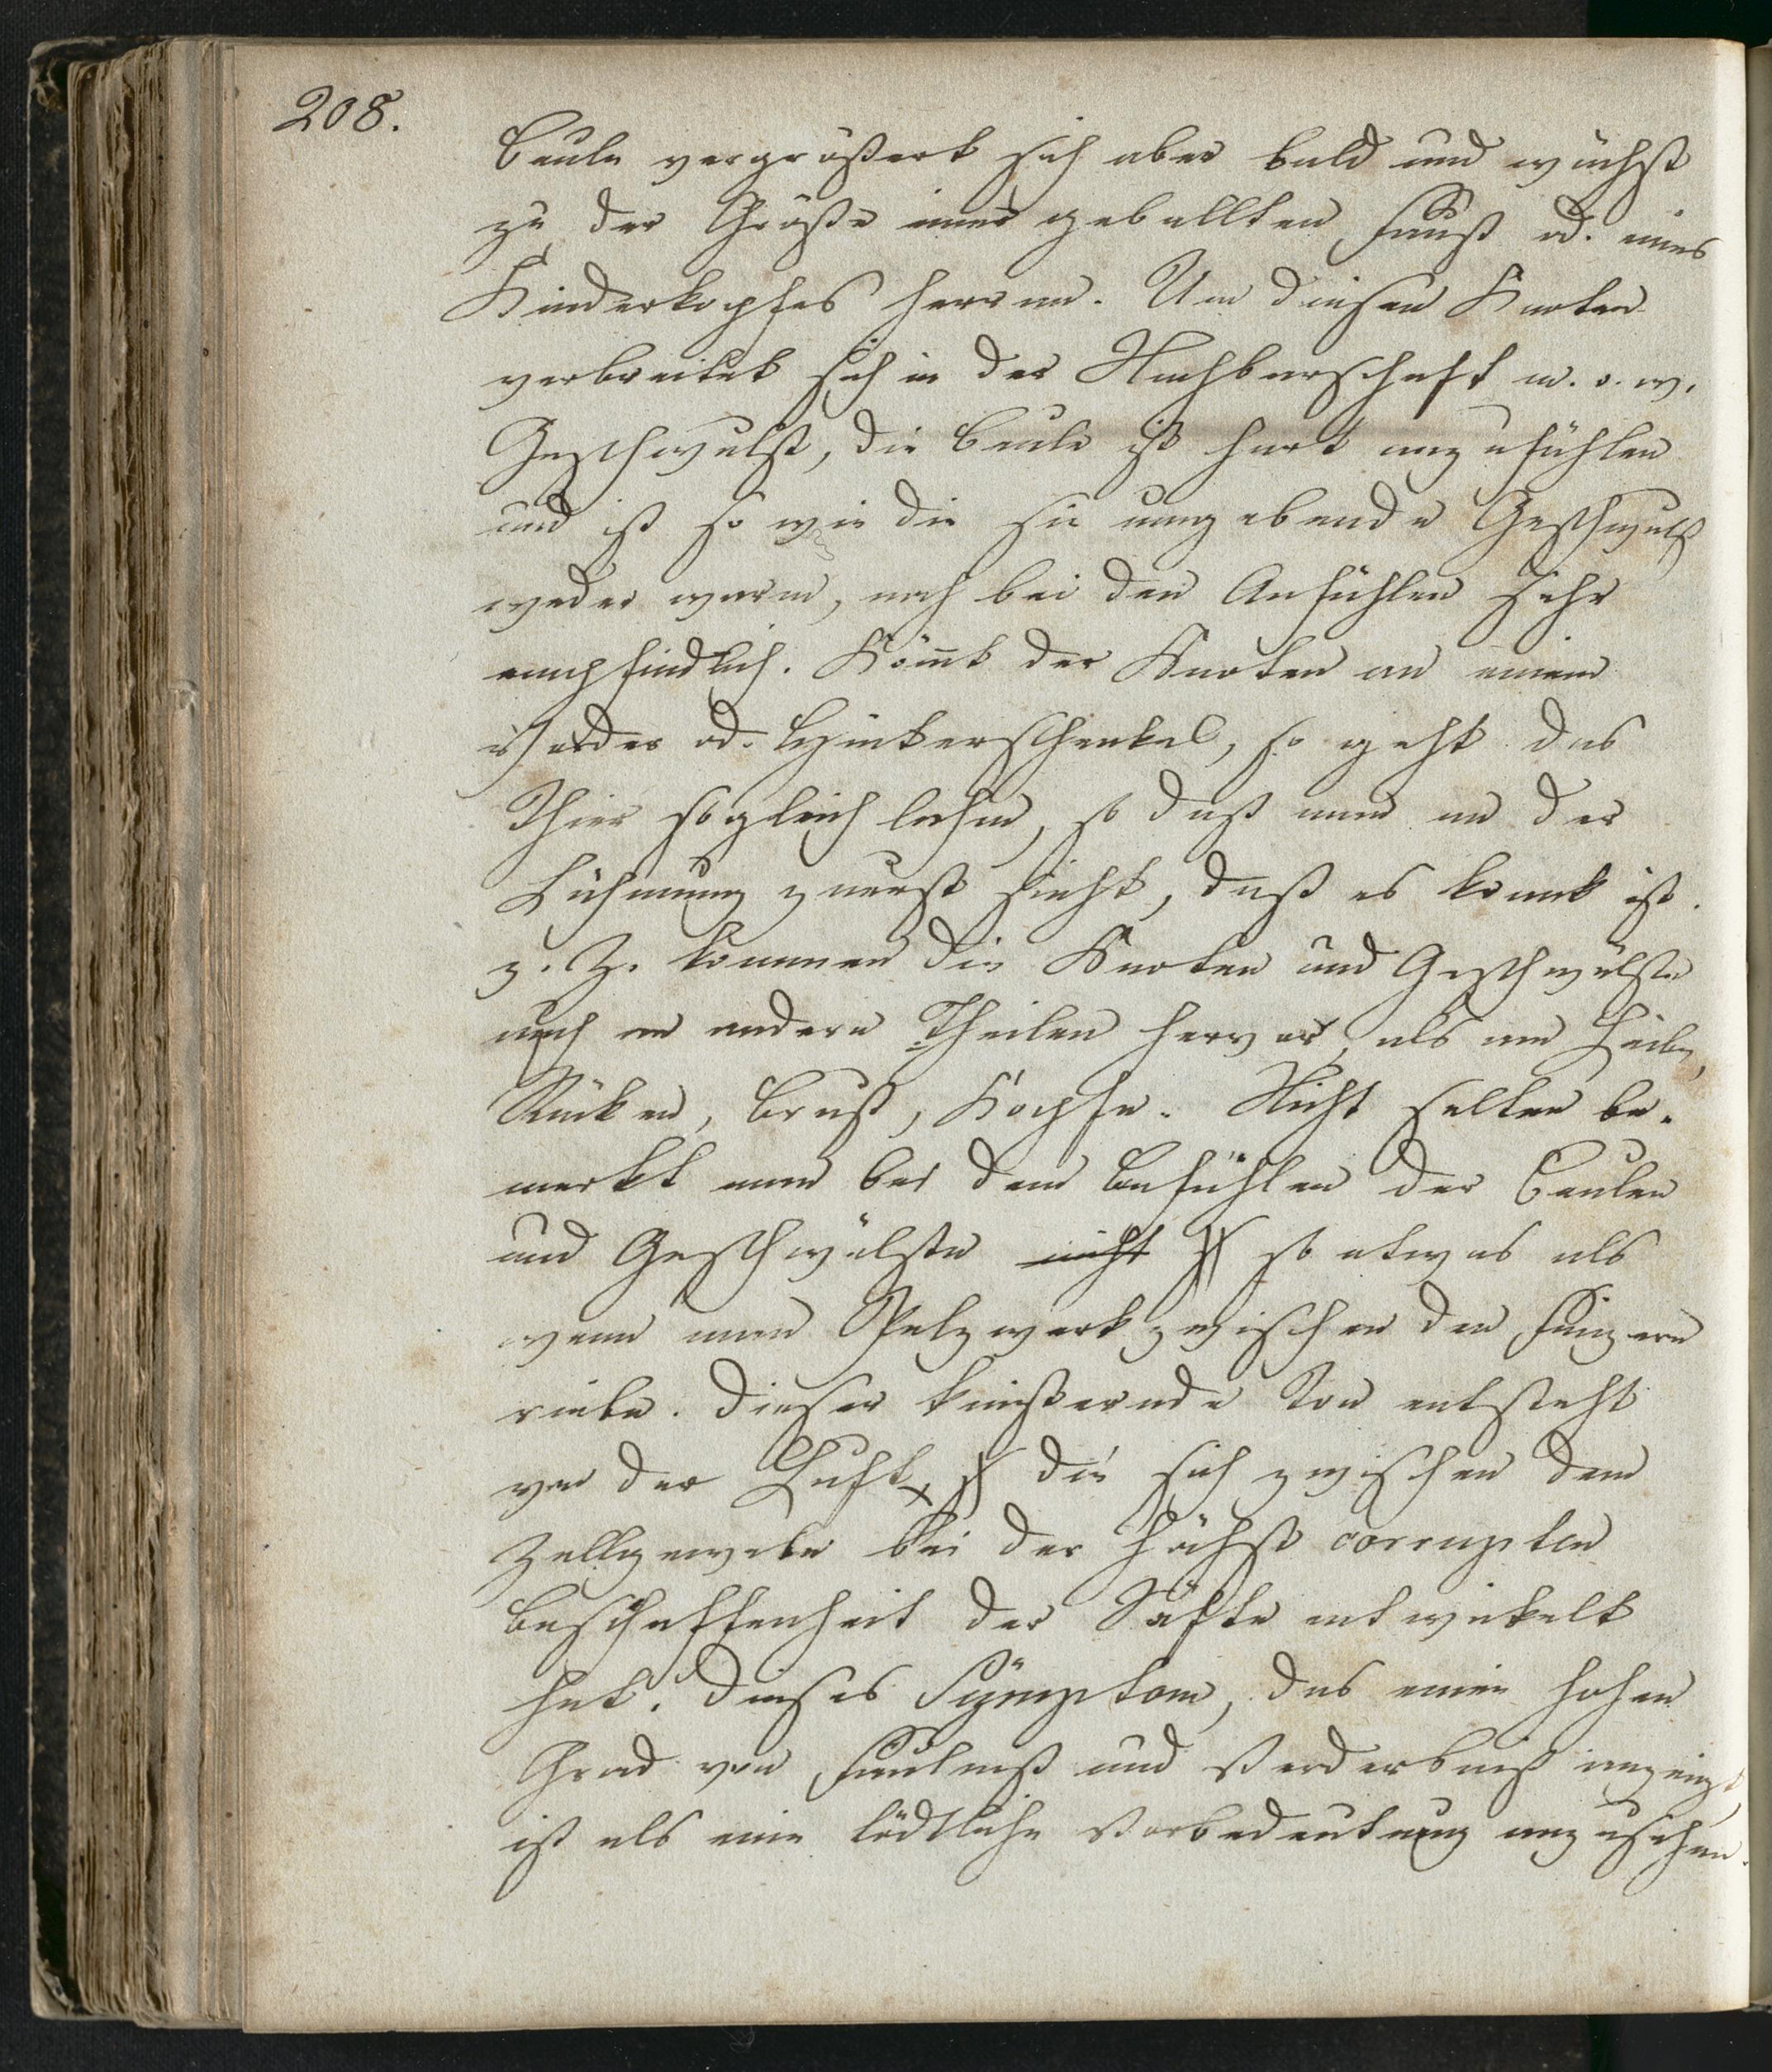 208.
Beule vergrößert sich aber bald und wächst
zu der Größe einer geballten Faust od. eines
Kinderkopfes heran. Um diesen Knoten
verbreitet sich in der Nachbarschaft m. o. w.
Geschwulst, die Beule ist hart anzufühlen
und ist so wie die sie umgebende Geschwulst
weder warm, noch bei den Anfühlen sehr
empfindlich. Kömt der Knoten an einem
Vorder od. Hinterschenkel, so geht das
Thier sogleich lahm, so daß man an der
Lähmung zuerst sieht, daß es krank ist.
z. Z. kommen die Knoten und Geschwülste
auch an andern Theilen hervor, als am Halse,
Rücken, Brust, Kopfe. Nicht selten be-
merkt man bei dem Befühlen der Beulen
und Geschwülste nicht so etwas als
wenn man Pelzwerk zwischen den Fingern
riebe. Dieser knisternde Ton entsteht
von der Luft, die sich zwischen dem
Zellgewebe bei der höchst corrupten
Beschaffenheit der Säfte entwickelt
hat. Dieses Symptom, das einen hohen
Grad von Fäulniß und Verderbniß anzeigt
ist als eine tödtliche Vorbedeutung anzusehen.